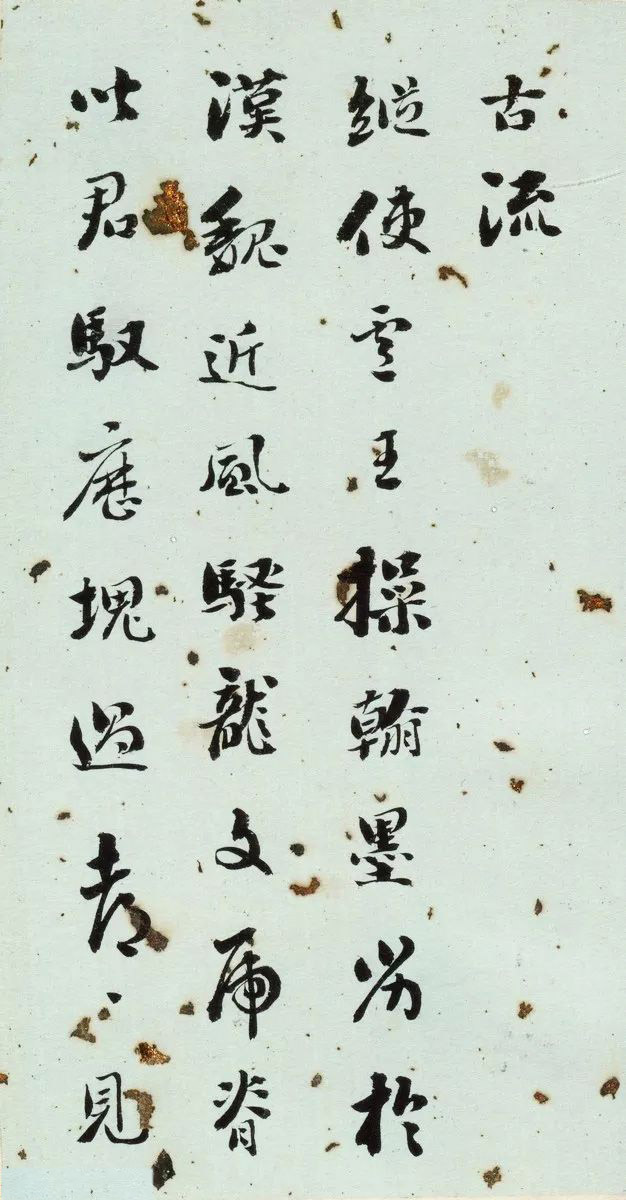 古流
縱使盧王操翰墨劣於
漢魏近風騷龍文虎脊
皆君馭歷塊過都、見